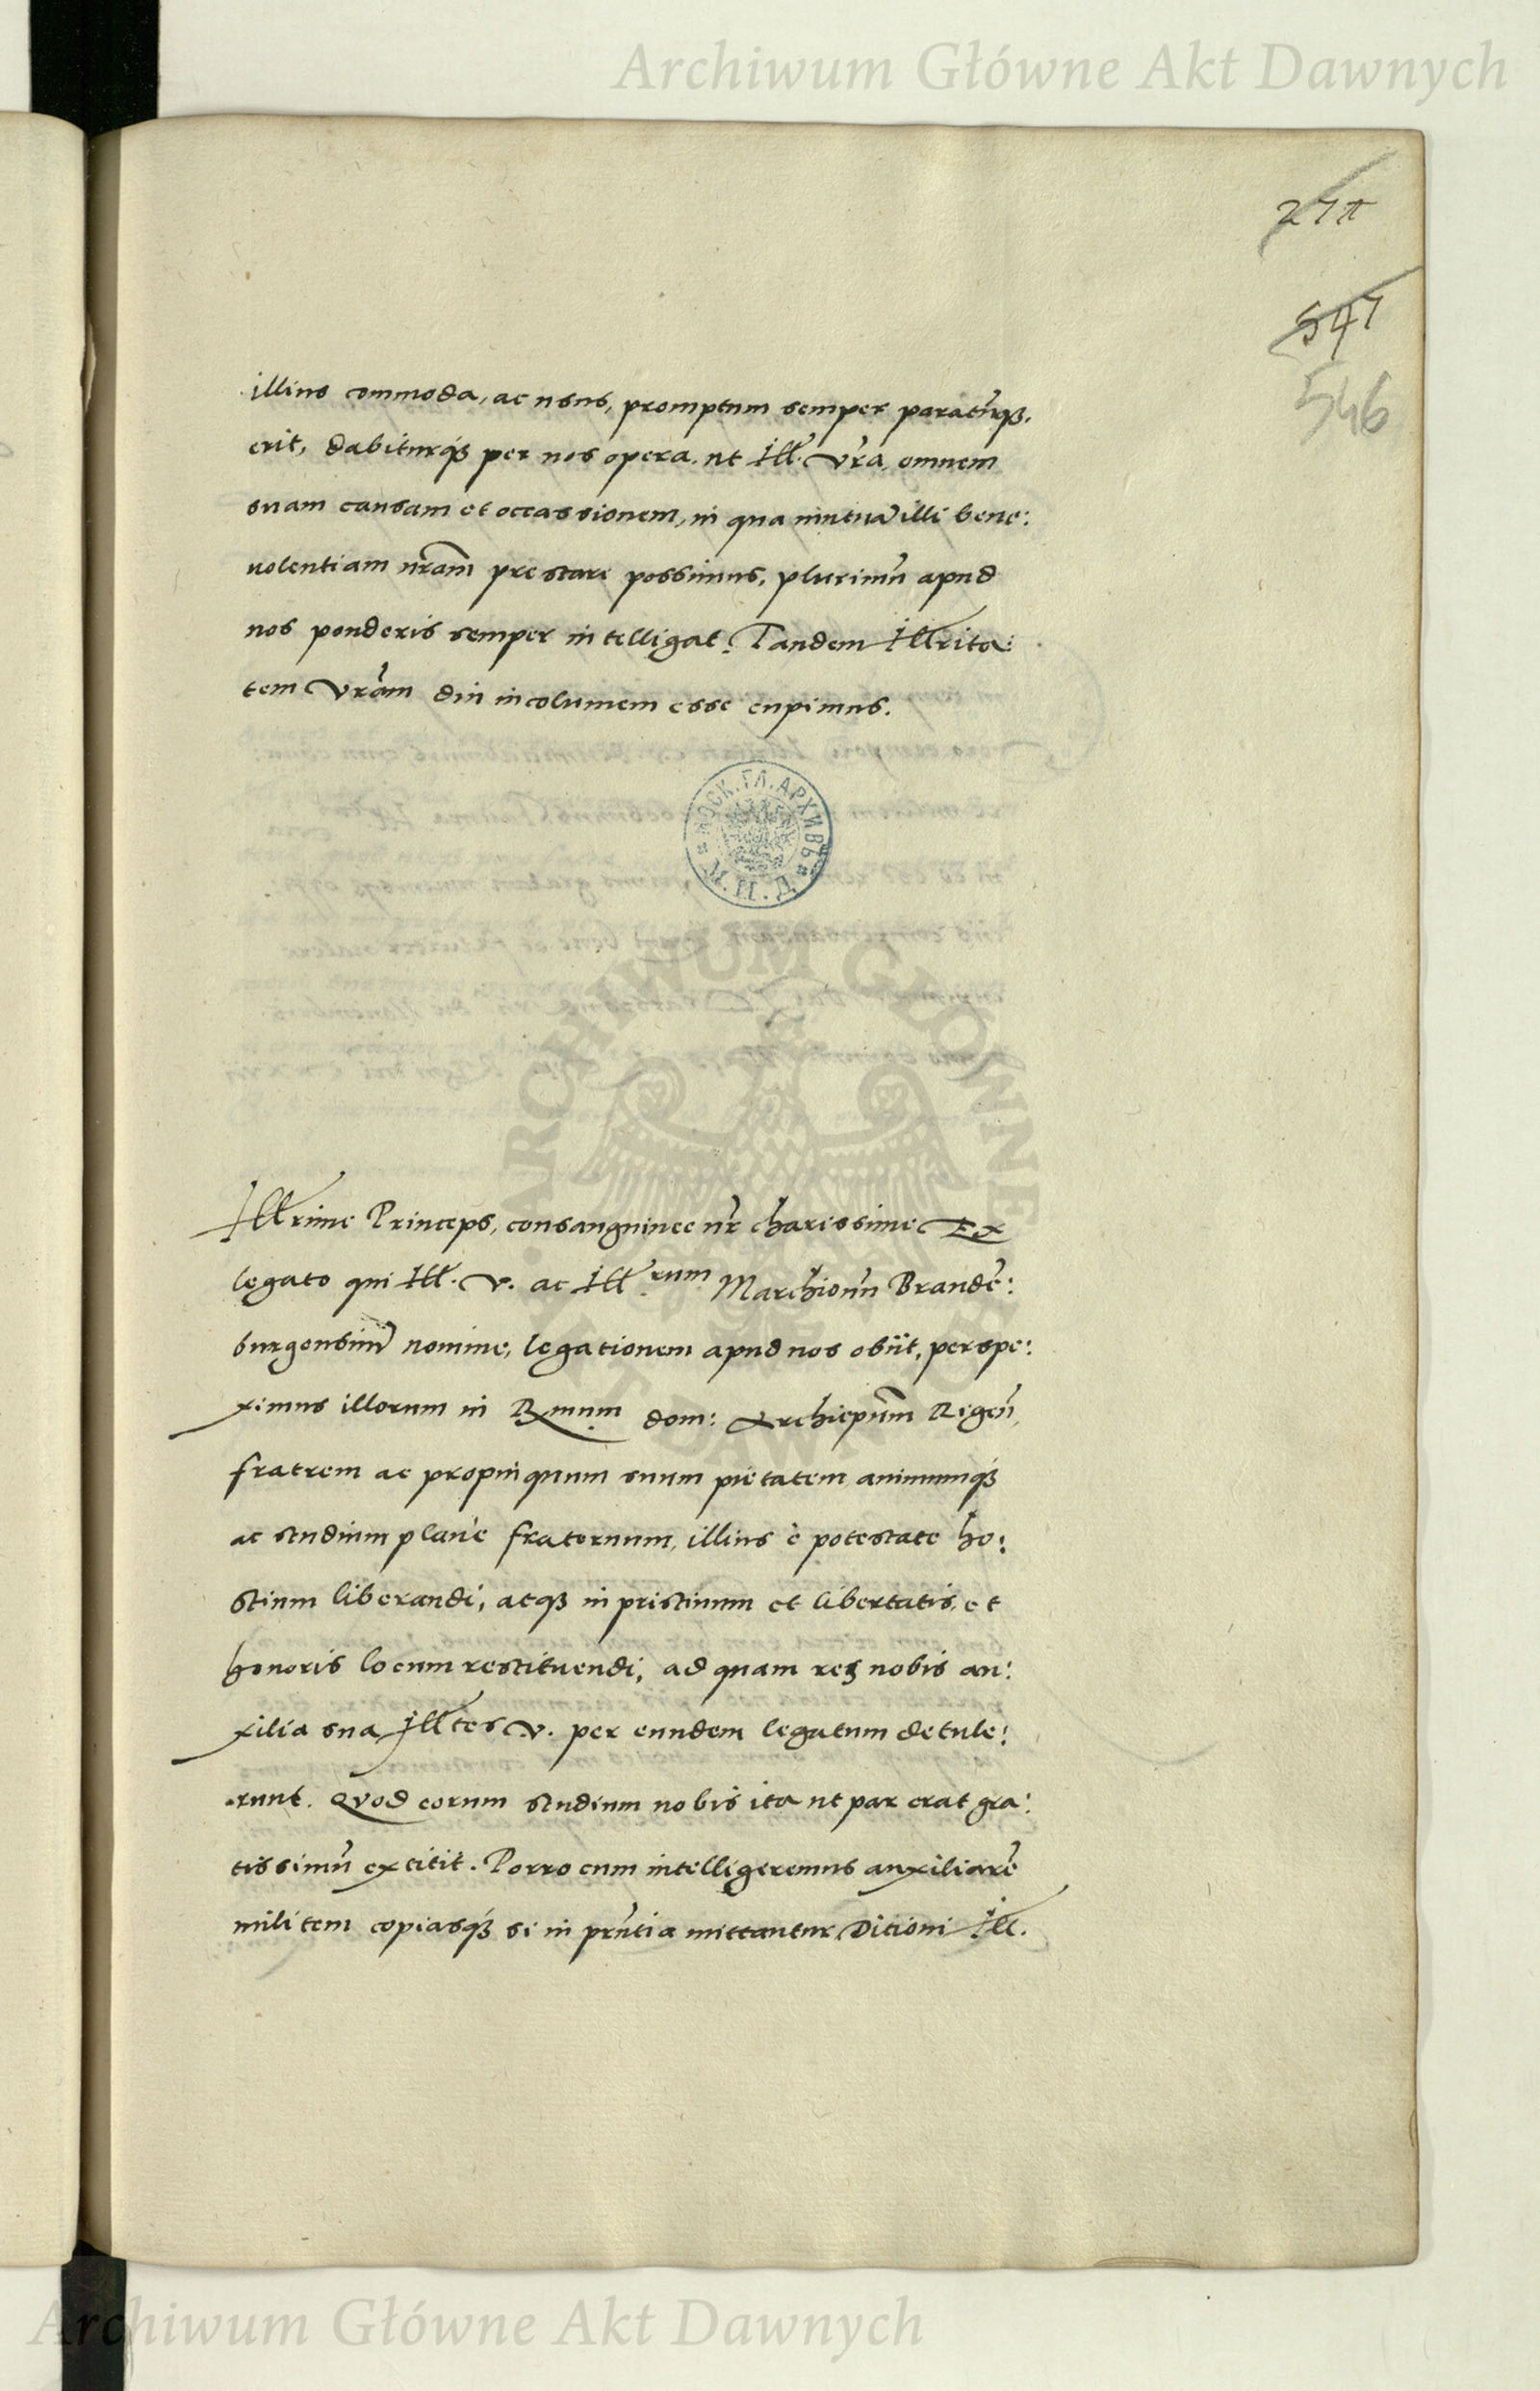 Archiwum Główne Akt Dawnych
271
547
546
illius commoda, ac usus, promptum semper paratũq;.
erit, dabiturq; per nos opera. ut Ill. Vra, omnem
suam causam et occassionem, in qua mutuã illi bene:
uolentiam nram prestare possimus, plurimũ apud
nos ponderis semper intelligat. Tandem Illrita:
tem Vram diu incolumem esse cupimus.
МОСК. ГЛ. АРХИВЪ М. И. Д.
ARCHIWUM GŁÓWNE AKT DAWNYCH
Illrime Princeps, consanguinee nr charissime Ex
legato qui Ill. V. ac Ill.rum Marchionũ Brandẽ:
burgensiũ nomine, legationem apud nos obiit, perspe:
ximus illorum in Rmum dom: Archiepum Rigeñ,
fratrem ac propinquum suum pietatem animumq;
ac studium planè fraternum, illius è potestate ho:
stium liberandi, atq; in pristinum et libertatis, et
honoris locum restituendi, ad quam rem nobis au:
xilia sua Illtes V. per eundem legatum detule:
runt. Quod eorum studium nobis ita ut par erat gra:
tissimũ extitit. Porro cum intelligeremus auxiliarẽ
militem copiasq; si in prñtia mittantur Ditioni Ill.
Archiwum Główne Akt Dawnych